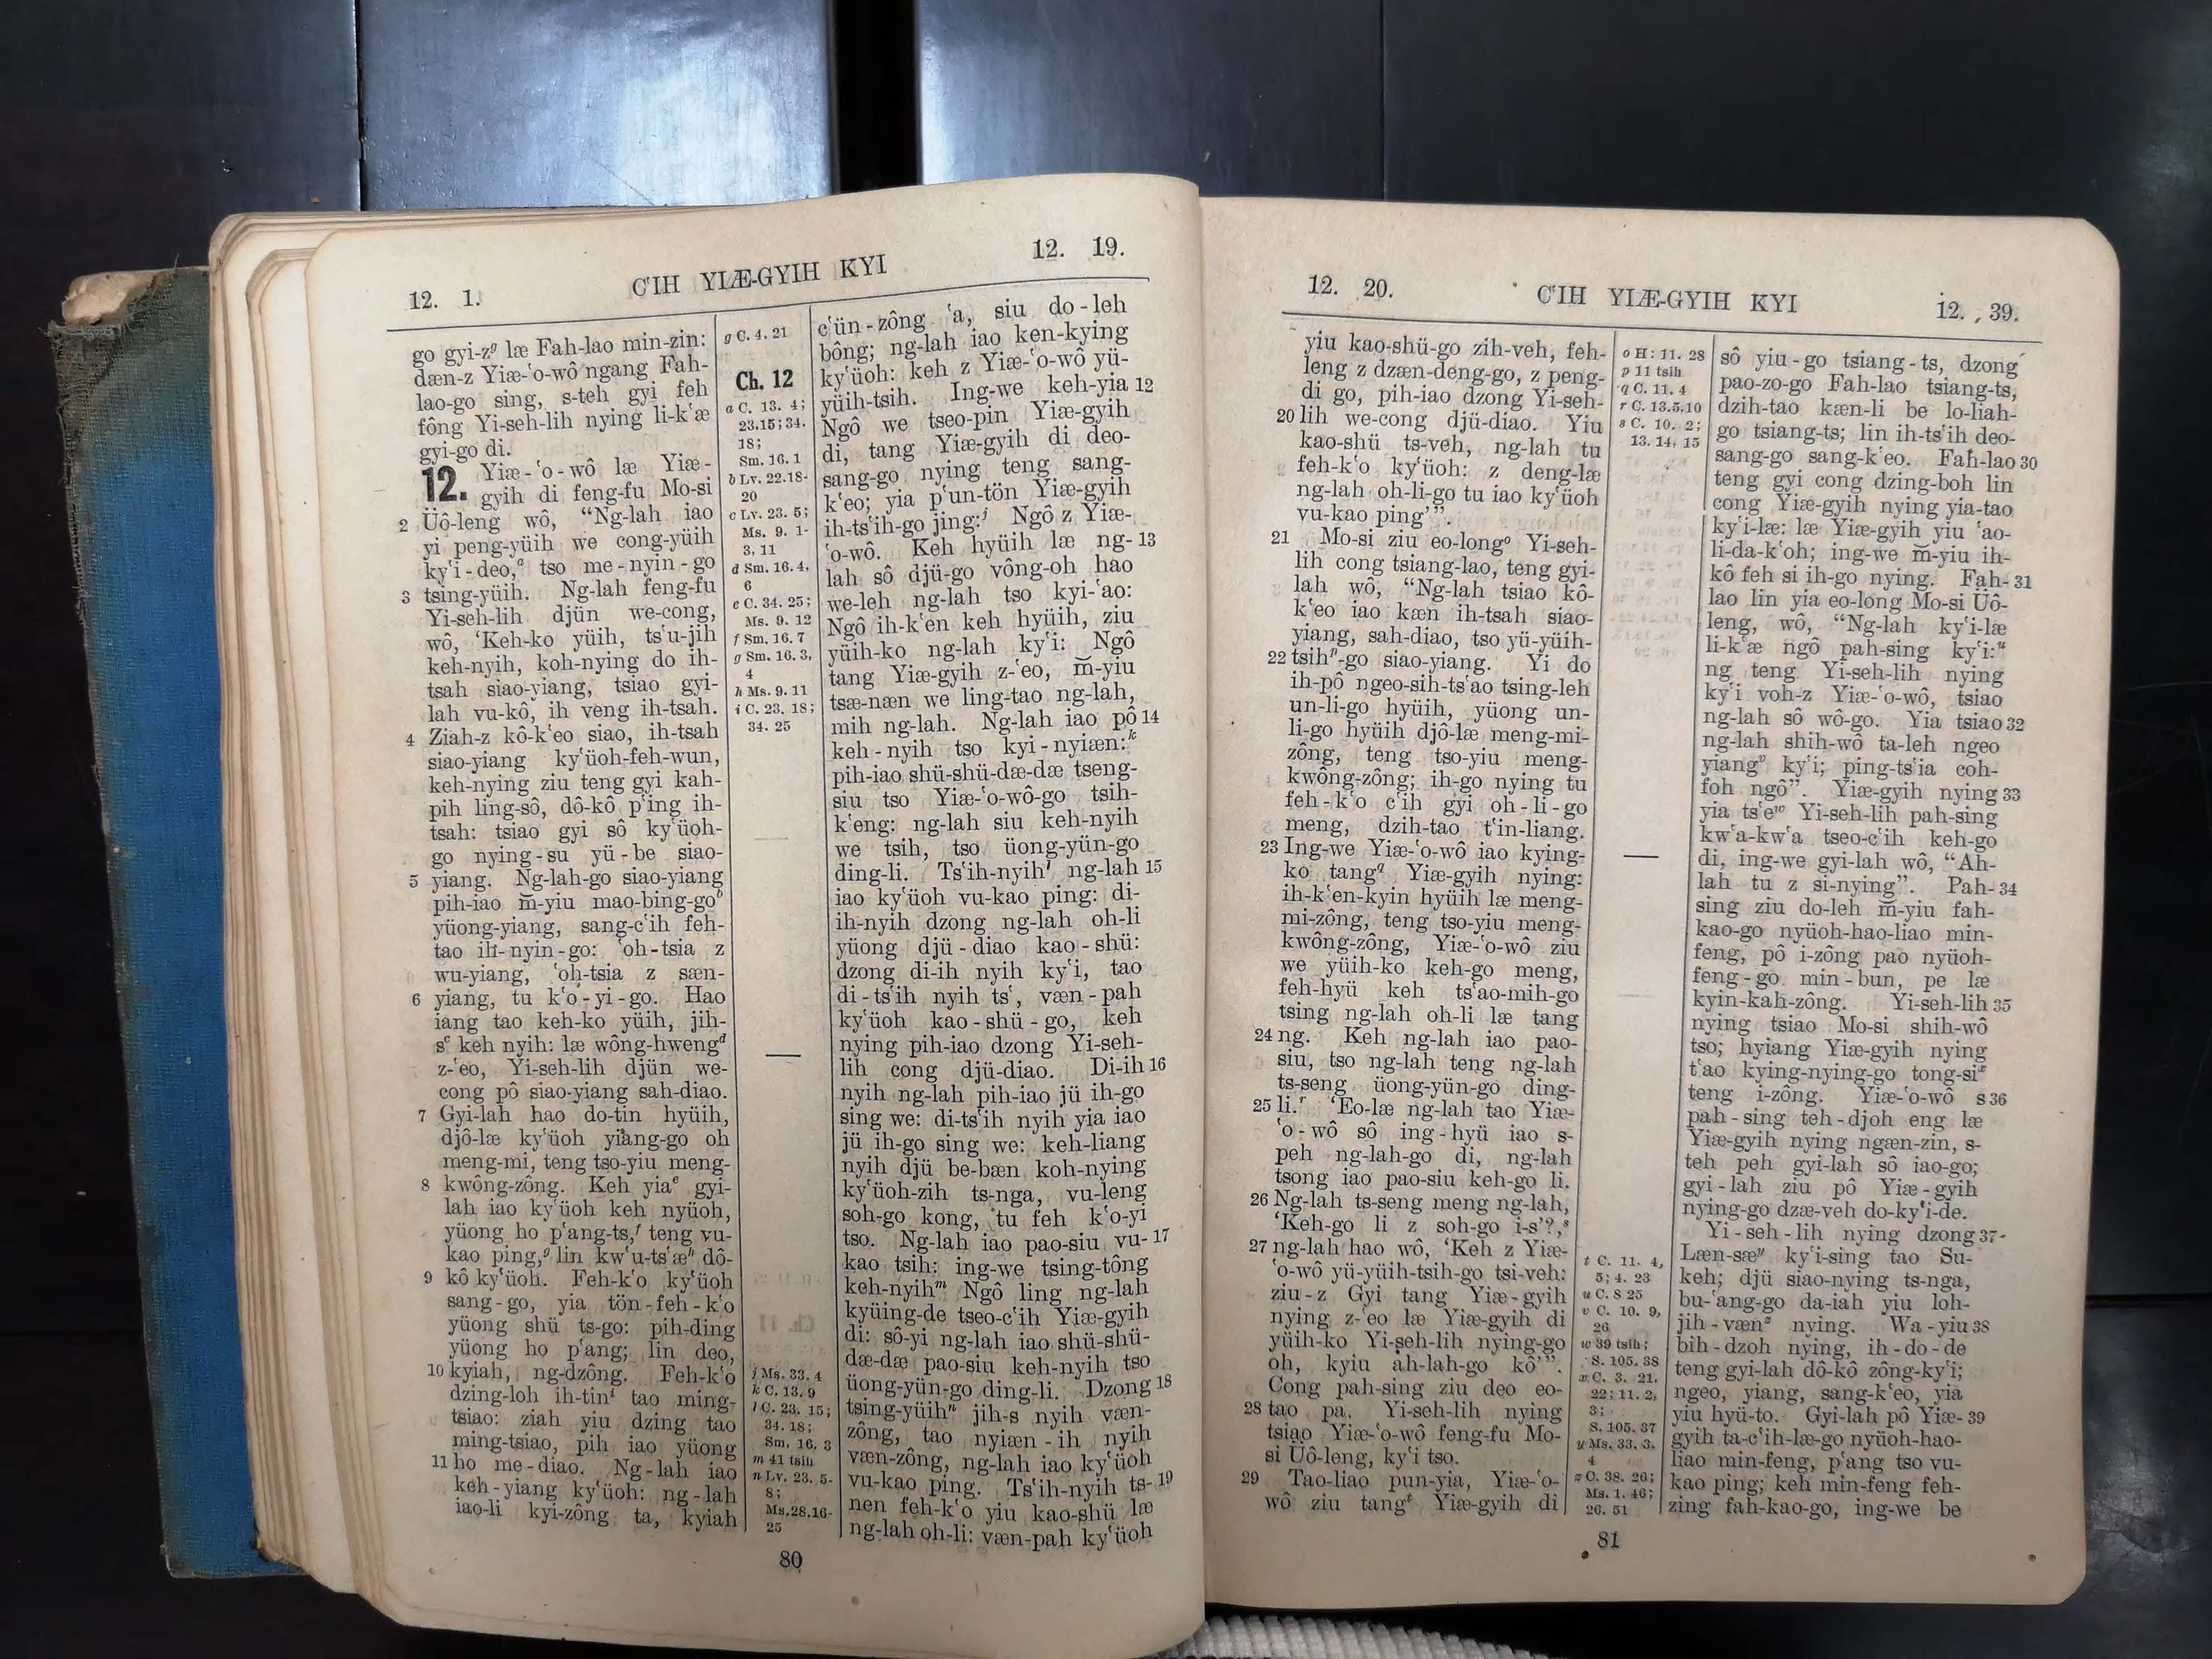 12. 1.
CʻIH YIÆ-GYIH KYI
12. 19.
go gyi-zᵍ læ Fah-lao min-zin:
dæn-z Yiæ-ʻo-wô ngang Fah-
lao-go sing, s-teh gyi feh
fông Yi-seh-lih nying li-kʻæ
gyi-go di.
12. Yiæ-ʻo-wô læ Yiæ-
gyih di feng-fu Mo-si
2 Üô-leng wô, “Ng-lah iao
yi peng-yüih we cong-yüih
kyʻi-deo,ᵃ tso me-nyin-go
3 tsing-yüih. Ng-lah feng-fu
Yi-seh-lih djün we-cong,
wô, ‘Keh-ko yüih, tsʻu-jih
keh-nyih, koh-nying do ih-
tsah siao-yiang, tsiao gyi-
lah vu-kô, ih veng ih-tsah.
4 Ziah-z kô-kʻeo siao, ih-tsah
siao-yiang kyʻüoh-feh-wun,
keh-nying ziu teng gyi kah-
pih ling-sô, dô-kô pʻing ih-
tsah: tsiao gyi sô kyʻüoh-
go nying-su yü-be siao-
5 yiang. Ng-lah-go siao-yiang
pih-iao m̆-yiu mao-bing-goᵇ
yüong-yiang, sang-cʻih feh-
tao ih-nyin-go: ʻoh-tsia z
wu-yiang, ʻoh-tsia z sæn-
6 yiang, tu kʻo-yi-go. Hao
iang tao keh-ko yüih, jih-
sᶜ keh nyih: læ wông-hwengᵈ
z-ʻeo, Yi-seh-lih djün we-
cong pô siao-yiang sah-diao.
7 Gyi-lah hao do-tin hyüih,
djô-læ kyʻüoh yiang-go oh
meng-mi, teng tso-yiu meng-
8 kwông-zông. Keh yiaᵉ gyi-
lah iao kyʻüoh keh nyüoh,
yüong ho pʻang-ts,ᶠ teng vu-
kao ping,ᵍ lin kwʻu-tsʻæʰ dô-
9 kô kyʻüoh. Feh-kʻo kyʻüoh
sang-go, yia tön-feh-kʻo
yüong shü ts-go: pih-ding
yüong ho pʻang; lin deo,
10 kyiah, ng-dzông. Feh-kʻo
dzing-loh ih-tinⁱ tao ming-
tsiao: ziah yiu dzing tao
ming-tsiao, pih iao yüong
11 ho me-diao. Ng-lah iao
keh-yiang kyʻüoh: ng-lah
iao-li kyi-zông ta, kyiah
g C. 4. 21
Ch. 12
a C. 13. 4;
23.15; 34.
18;
Sm. 16. 1
b Lv. 22.18-
20
c Lv. 23. 5;
Ms. 9. 1-
3, 11
d Sm. 16. 4,
6
e C. 34. 25;
Ms. 9. 12
f Sm. 16. 7
g Sm. 16. 3,
4
h Ms. 9. 11
i C. 23. 18;
34. 25
j Ms. 33. 4
k C. 13. 9
l C. 23. 15;
34. 18;
Sm. 16. 3
m 41 tsih
n Lv. 23. 5-
8;
Ms.28.16-
25
cʻün-zông ʻa, siu do-leh
bông; ng-lah iao ken-kying
kyʻüoh: keh z Yiæ-ʻo-wô yü-
yüih-tsih. Ing-we keh-yia 12
Ngô we tseo-pin Yiæ-gyih
di, tang Yiæ-gyih di deo-
sang-go nying teng sang-
kʻeo; yia pʻun-tön Yiæ-gyih
ih-tsʻih-go jing:ʲ Ngô z Yiæ-
ʻo-wô. Keh hyüih læ ng- 13
lah sô djü-go vông-oh hao
we-leh ng-lah tso kyi-ʻao:
Ngô ih-kʻen keh hyüih, ziu
yüih-ko ng-lah kyʻi: Ngô
tang Yiæ-gyih z-ʻeo, m̆-yiu
tsæ-næn we ling-tao ng-lah,
mih ng-lah. Ng-lah iao pô 14
keh-nyih tso kyi-nyiæn:ᵏ
pih-iao shü-shü-dæ-dæ tseng-
siu tso Yiæ-ʻo-wô-go tsih-
kʻeng: ng-lah siu keh-nyih
we tsih, tso üong-yün-go
ding-li. Tsʻih-nyihˡ ng-lah 15
iao kyʻüoh vu-kao ping: di-
ih-nyih dzong ng-lah oh-li
yüong djü-diao kao-shü:
dzong di-ih nyih kyʻi, tao
di-tsʻih nyih tsʻ, væn-pah
kyʻüoh kao-shü-go, keh
nying pih-iao dzong Yi-seh-
lih cong djü-diao. Di-ih 16
nyih ng-lah pih-iao jü ih-go
sing we: di-tsʻih nyih yia iao
jü ih-go sing we: keh-liang
nyih djü be-bæn koh-nying
kyʻüoh-zih ts-nga, vu-leng
soh-go kong, tu feh kʻo-yi
tso. Ng-lah iao pao-siu vu- 17
kao tsih: ing-we tsing-tông
keh-nyihᵐ Ngô ling ng-lah
kyüing-de tseo-cʻih Yiæ-gyih
di: sô-yi ng-lah iao shü-shü-
dæ-dæ pao-siu keh-nyih tso
üong-yün-go ding-li. Dzong 18
tsing-yüihⁿ jih-s nyih væn-
zông, tao nyiæn-ih nyih
væn-zông, ng-lah iao kyʻüoh
vu-kao ping. Tsʻih-nyih ts- 19
nen feh-kʻo yiu kao-shü læ
ng-lah oh-li: væn-pah kyʻüoh
80
12. 20.
CʻIH YIÆ-GYIH KYI
12. 39.
yiu kao-shü-go zih-veh, feh-
leng z dzæn-deng-go, z peng-
di go, pih-iao dzong Yi-seh-
20 lih we-cong djü-diao. Yiu
kao-shü ts-veh, ng-lah tu
feh-kʻo kyʻüoh: z deng-læ
ng-lah oh-li-go tu iao kyʻüoh
vu-kao ping’”.
21 Mo-si ziu eo-longᵒ Yi-seh-
lih cong tsiang-lao, teng gyi-
lah wô, “Ng-lah tsiao kô-
kʻeo iao kæn ih-tsah siao-
yiang, sah-diao, tso yü-yüih-
22 tsihᵖ-go siao-yiang. Yi do
ih-pô ngeo-sih-tsʻao tsing-leh
un-li-go hyüih, yüong un-
li-go hyüih djô-læ meng-mi-
zông, teng tso-yiu meng-
kwông-zông; ih-go nying tu
feh-kʻo cʻih gyi oh-li-go
meng, dzih-tao tʻin-liang.
23 Ing-we Yiæ-ʻo-wô iao kying-
ko tang𐞥 Yiæ-gyih nying:
ih-kʻen-kyin hyüih læ meng-
mi-zông, teng tso-yiu meng-
kwông-zông, Yiæ-ʻo-wô ziu
we yüih-ko keh-go meng,
feh-hyü keh tsʻao-mih-go
tsing ng-lah oh-li læ tang
24 ng. Keh ng-lah iao pao-
siu, tso ng-lah teng ng-lah
ts-seng üong-yün-go ding-
25 li.ʳ ʻEo-læ ng-lah tao Yiæ-
ʻo-wô sô ing-hyü iao s-
peh ng-lah-go di, ng-lah
tsong iao pao-siu keh-go li.
26 Ng-lah ts-seng meng ng-lah,
‘Keh-go li z soh-go i-s’?,ˢ
27 ng-lah hao wô, ‘Keh z Yiæ-
ʻo-wô yü-yüih-tsih-go tsi-veh:
ziu-z Gyi tang Yiæ-gyih
nying z-ʻeo læ Yiæ-gyih di
yüih-ko Yi-seh-lih nying-go
oh, kyiu ah-lah-go kô’”.
Cong pah-sing ziu deo eo-
28 tao pa. Yi-seh-lih nying
tsiao Yiæ-ʻo-wô feng-fu Mo-
si Üô-leng, kyʻi tso.
29 Tao-liao pun-yia, Yiæ-ʻo-
wô ziu tangᵗ Yiæ-gyih di
o H: 11. 28
p 11 tsih
q C. 11. 4
r C. 13.5,10
s C. 10. 2;
13. 14, 15
t C. 11. 4,
5; 4. 23
u C. 8 25
v C. 10. 9,
26
w 39 tsih;
S. 105. 38
x C. 3. 21,
22; 11. 2,
3;
S. 105. 37
y Ms. 33. 3,
4
z C. 38. 26;
Ms. 1. 46;
26. 51
sô yiu-go tsiang-ts, dzong
pao-zo-go Fah-lao tsiang-ts,
dzih-tao kæn-li be lo-liah-
go tsiang-ts; lin ih-tsʻih deo-
sang-go sang-kʻeo. Fah-lao 30
teng gyi cong dzing-boh lin
cong Yiæ-gyih nying yia-tao
kyʻi-læ: læ Yiæ-gyih yiu ʻao-
li-da-kʻoh; ing-we m̆-yiu ih-
kô feh si ih-go nying. Fah- 31
lao lin yia eo-long Mo-si Üô-
leng, wô, “Ng-lah kyʻi-læ
li-kʻæ ngô pah-sing kyʻi:ᵘ
ng teng Yi-seh-lih nying
kyʻi voh-z Yiæ-ʻo-wô, tsiao
ng-lah sô wô-go. Yia tsiao 32
ng-lah shih-wô ta-leh ngeo
yiangᵛ kyʻi; ping-tsʻia coh-
foh ngô”. Yiæ-gyih nying 33
yia tsʻeʷ Yi-seh-lih pah-sing
kwʻa-kwʻa tseo-cʻih keh-go
di, ing-we gyi-lah wô, “Ah-
lah tu z si-nying”. Pah- 34
sing ziu do-leh m̆-yiu fah-
kao-go nyüoh-hao-liao min-
feng, pô i-zông pao nyüoh-
feng-go min-bun, pe læ
kyin-kah-zông. Yi-seh-lih 35
nying tsiao Mo-si shih-wô
tso; hyiang Yiæ-gyih nying
tʻao kying-nying-go tong-siˣ
teng i-zông. Yiæ-ʻo-wô s 36
pah-sing teh-djoh eng læ
Yiæ-gyih nying ngæn-zin, s-
teh peh gyi-lah sô iao-go;
gyi-lah ziu pô Yiæ-gyih
nying-go dzæ-veh do-kyʻi-de.
Yi-seh-lih nying dzong 37
Læn-sæʸ kyʻi-sing tao Su-
keh; djü siao-nying ts-nga,
bu-ʻang-go da-iah yiu loh-
jih-vænᶻ nying. Wa-yiu 38
bih-dzoh nying, ih-do-de
teng gyi-lah dô-kô zông-kyʻi;
ngeo, yiang, sang-kʻeo, yia
yiu hyü-to. Gyi-lah pô Yiæ- 39
gyih ta-cʻih-læ-go nyüoh-hao-
liao min-feng, pʻang tso vu-
kao ping; keh min-feng feh-
zing fah-kao-go, ing-we be
81